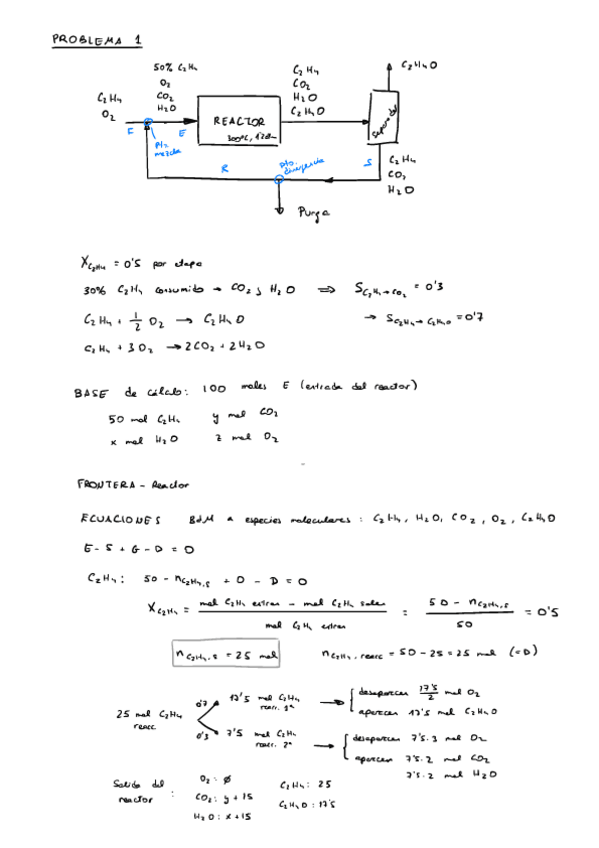 PROBLEMA 1
50% C₂H₄
O₂
CO₂
H₂O
C₂H₄
O₂
F
E
Pto. mezcla
REACTOR
300ºC, 1'2 atm
C₂H₄
CO₂
H₂O
C₂H₄O
Separador
C₂H₄O
C₂H₄
CO₂
H₂O
S
R
Pto. divergencia
Purga
X C₂H₄ = 0'5 por etapa
30% C₂H₄ consumido → CO₂ y H₂O ⇒ S C₂H₄→CO₂ = 0'3
C₂H₄ + 1/2 O₂ → C₂H₄O → S C₂H₄→C₂H₄O = 0'7
C₂H₄ + 3O₂ → 2CO₂ + 2H₂O
BASE de cálculo: 100 moles E (entrada del reactor)
50 mol C₂H₄ y mol CO₂
x mol H₂O z mol O₂
FRONTERA - Reactor
ECUACIONES BdM a especies moleculares: C₂H₄, H₂O, CO₂, O₂, C₂H₄O
E - S + G - D = 0
C₂H₄: 50 - n C₂H₄,s + 0 - D = 0
X C₂H₄ = (mol C₂H₄ entran - mol C₂H₄ salen) / (mol C₂H₄ entran) = (50 - n C₂H₄,s) / 50 = 0'5
n C₂H₄,s = 25 mol n C₂H₄,reacc = 50 - 25 = 25 mol (=D)
25 mol C₂H₄ reacc.
0'7 17'5 mol C₂H₄ reacc. 1ª → desaparecen 17'5/2 mol O₂
aparecen 17'5 mol C₂H₄O
0'3 7'5 mol C₂H₄ reacc. 2ª → desaparecen 7'5·3 mol O₂
aparecen 7'5·2 mol CO₂
7'5·2 mol H₂O
Salida del reactor :
O₂: ∅ C₂H₄: 25
CO₂: y + 15 C₂H₄O: 17'5
H₂O: x + 15